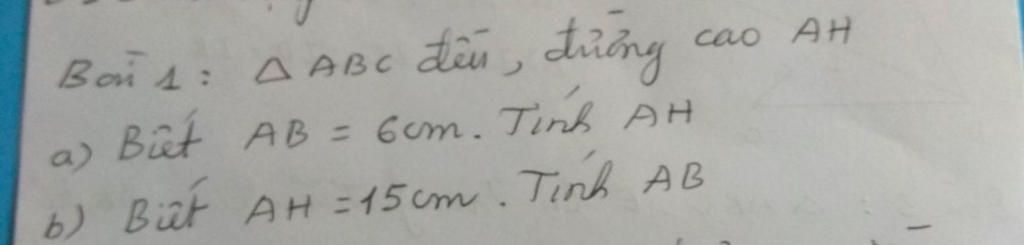 Bài 1: △ ABC đều, đường cao AH
a) Biết AB = 6cm. Tính AH
b) Biết AH = 15cm. Tính AB